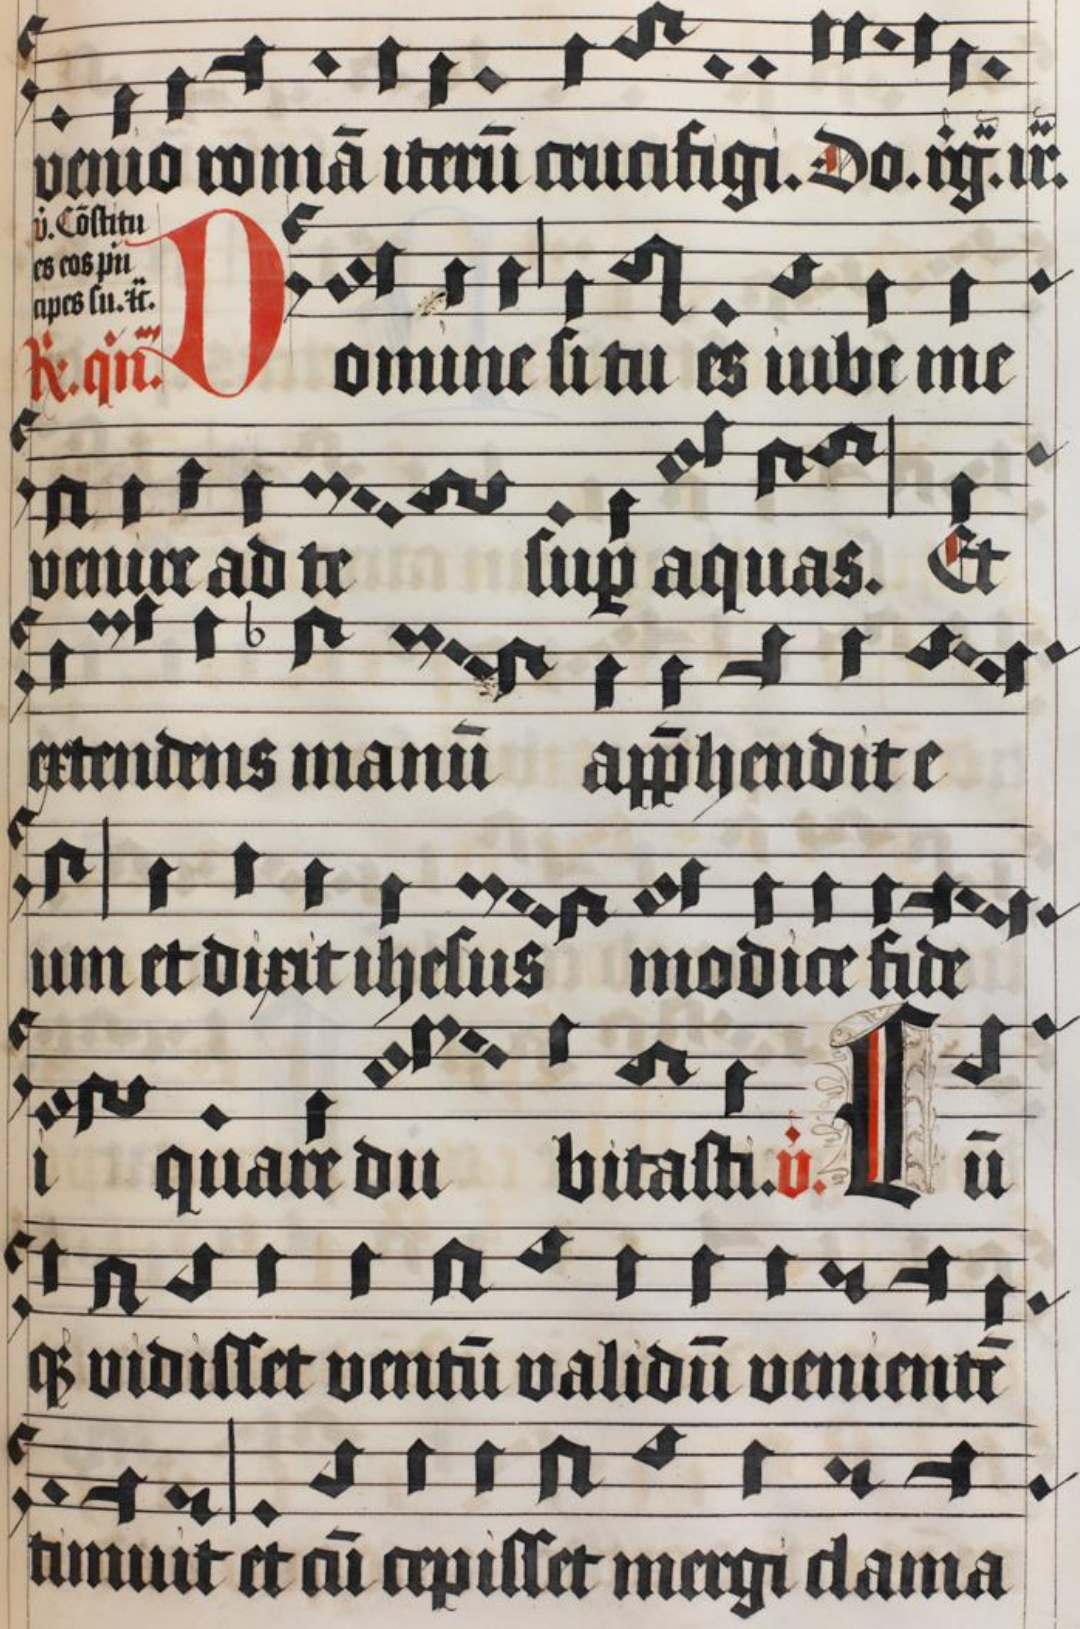 venio romā iterū crucifigi. Do. iıg̈. ir̈.
v̇. Cōstitu
es eos pͥn
cipes su. ⁊c̈.
R̷. qn̄.
Domine si tu es iube me
venire ad te sup̱ aquas. Et
extendens manū app̄hendit e
um et dixit ihesus modice fide
i quare du bitasti. v̇. Cū
qꝫ vidisset ventū validū venientē
timuit et cū cepisset mergi clama